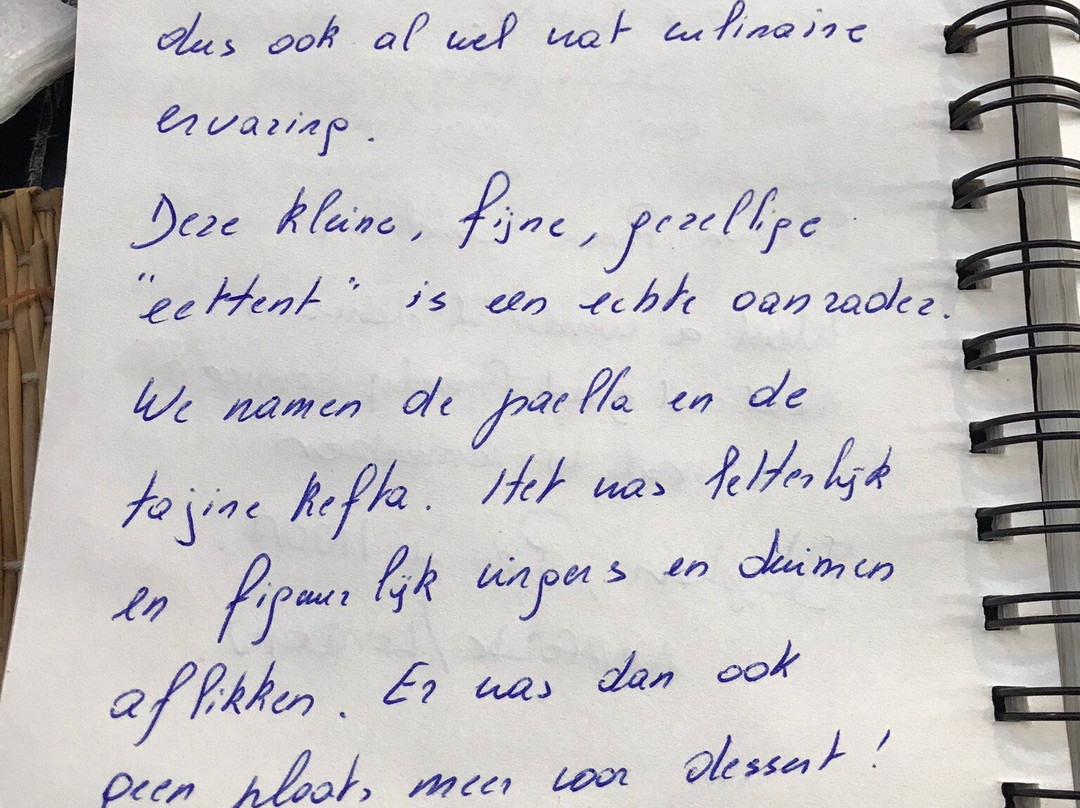 dus ook al wel wat culinaire
ervaring.
Deze kleine, fijne, gezellige
"eettent" is een echte aanrader.
We namen de paella en de
tajine kefta. Het was letterlijk
en figuurlijk vingers en duimen
aflikken. Er was dan ook
geen plaats meer voor dessert!